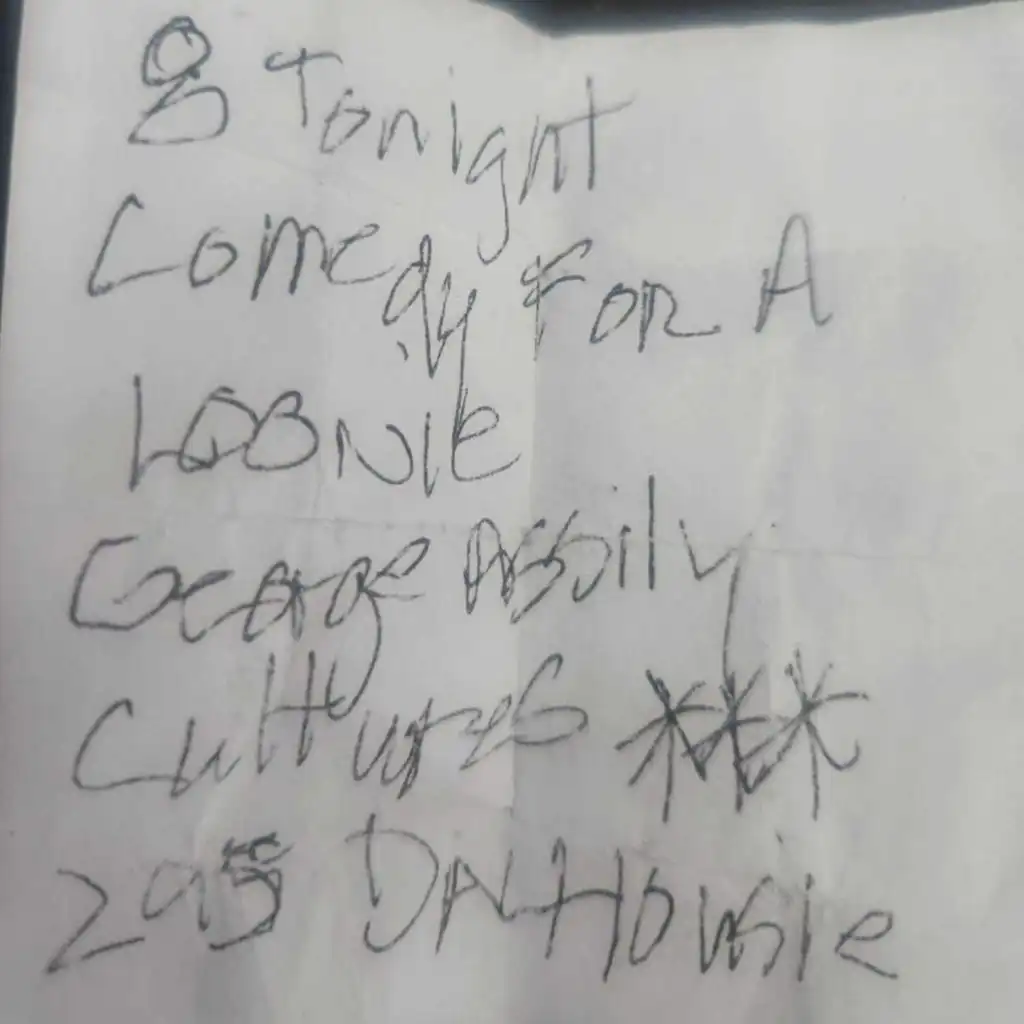 8 Tonight
Comedy FOR A
LOONIE
George Assily
Cultures ***
295 DALHousie